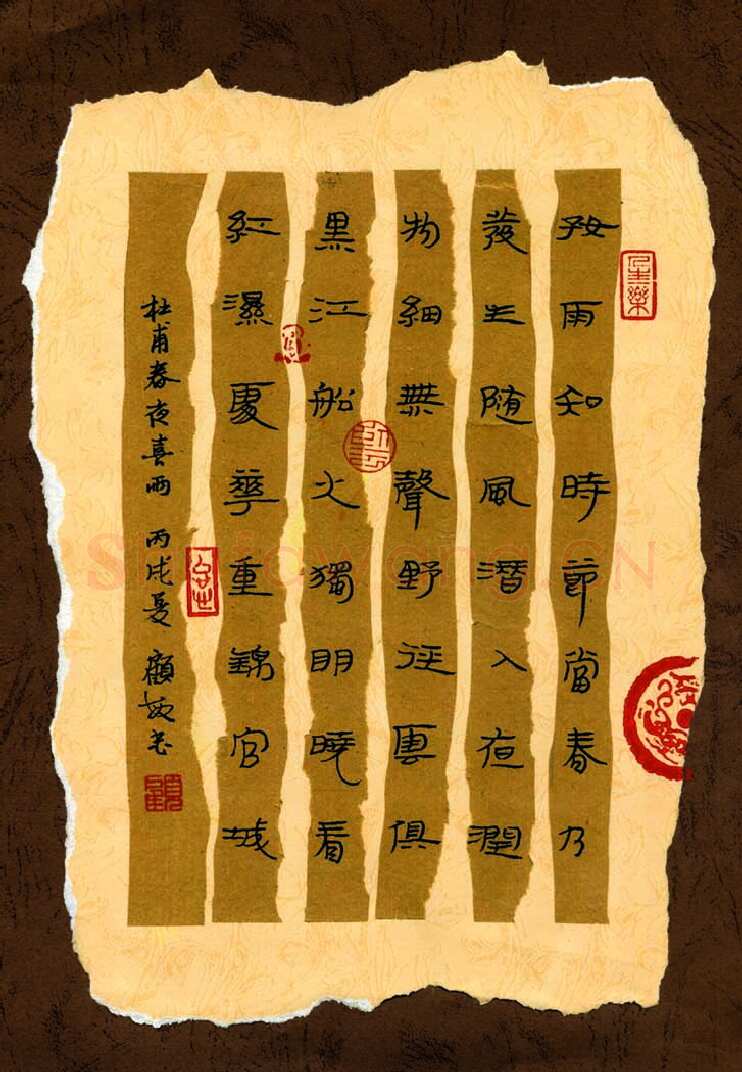 好雨知時節當春乃
發生随風潛入夜潤
物細無聲野徑雲俱
黑江船火獨明曉看
紅濕處華重錦官城
杜甫春夜喜雨 丙戌夏 顧
Shufawang.CN